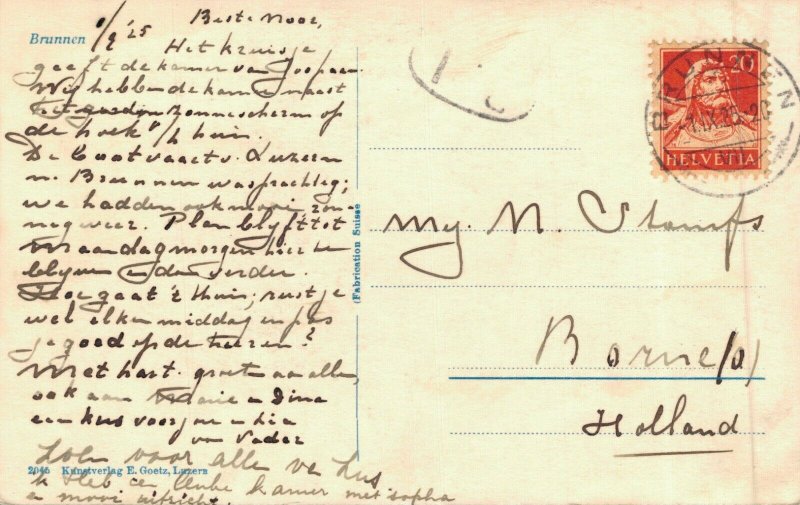 Brunnen 1/9 '25
Beste Noor,
Het kruisje
geeft de kamer van Joop aan.
Wij hebben de kamer naast
zonnescherm op
de hoek v/h huis.
De bootvaart v. Luzern
n. Brunnen was prachtig;
we hadden ook mooi zon-
nig weer. Plan blijft tot
Maandagmorgen hier te
blijven en dan verder.
Hoe gaat 't thuis; rust je
wel elken middag en pas
je goed op de heeren?
Met hart. groeten aan allen,
ook aan Marie en Dina
een kus voor jou en
van Vader
voor alle
Ik heb een leuke kamer met Sopha
en mooi uitzicht.
2045 Kunstverlag E. Goetz, Luzern
(Fabrication Suisse)
HELVETIA
20
BRUNNEN
1.IX.
Mej. N. Stamfs
Borne (o)
Holland